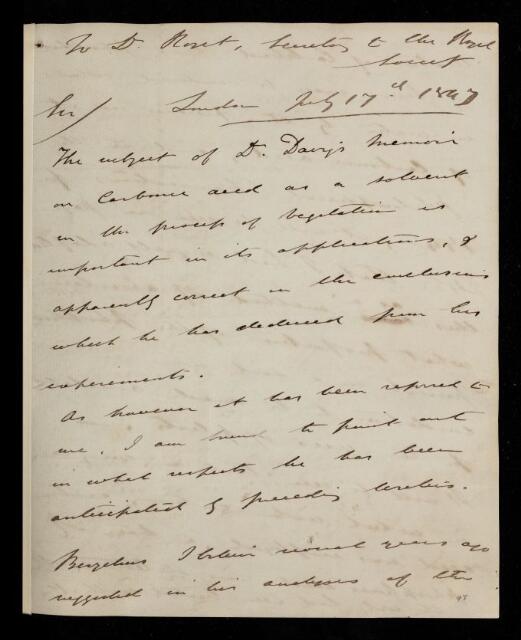 To Dr. Roget, Secretary to the Royal
Society
Sir/ London July 17th 1847
The subject of Dr. Davy's Memoir
on Carbonic acid as a solvent
in the process of vegetation is
important in its applications, &
apparently correct in the conclusions
which he has deduced from his
experiments.
As however it has been referred to
me, I am bound to point out
in what respects he has been
anticipated by preceding writers.
Berzelius I believe several years ago
suggested in his analyses of the
98